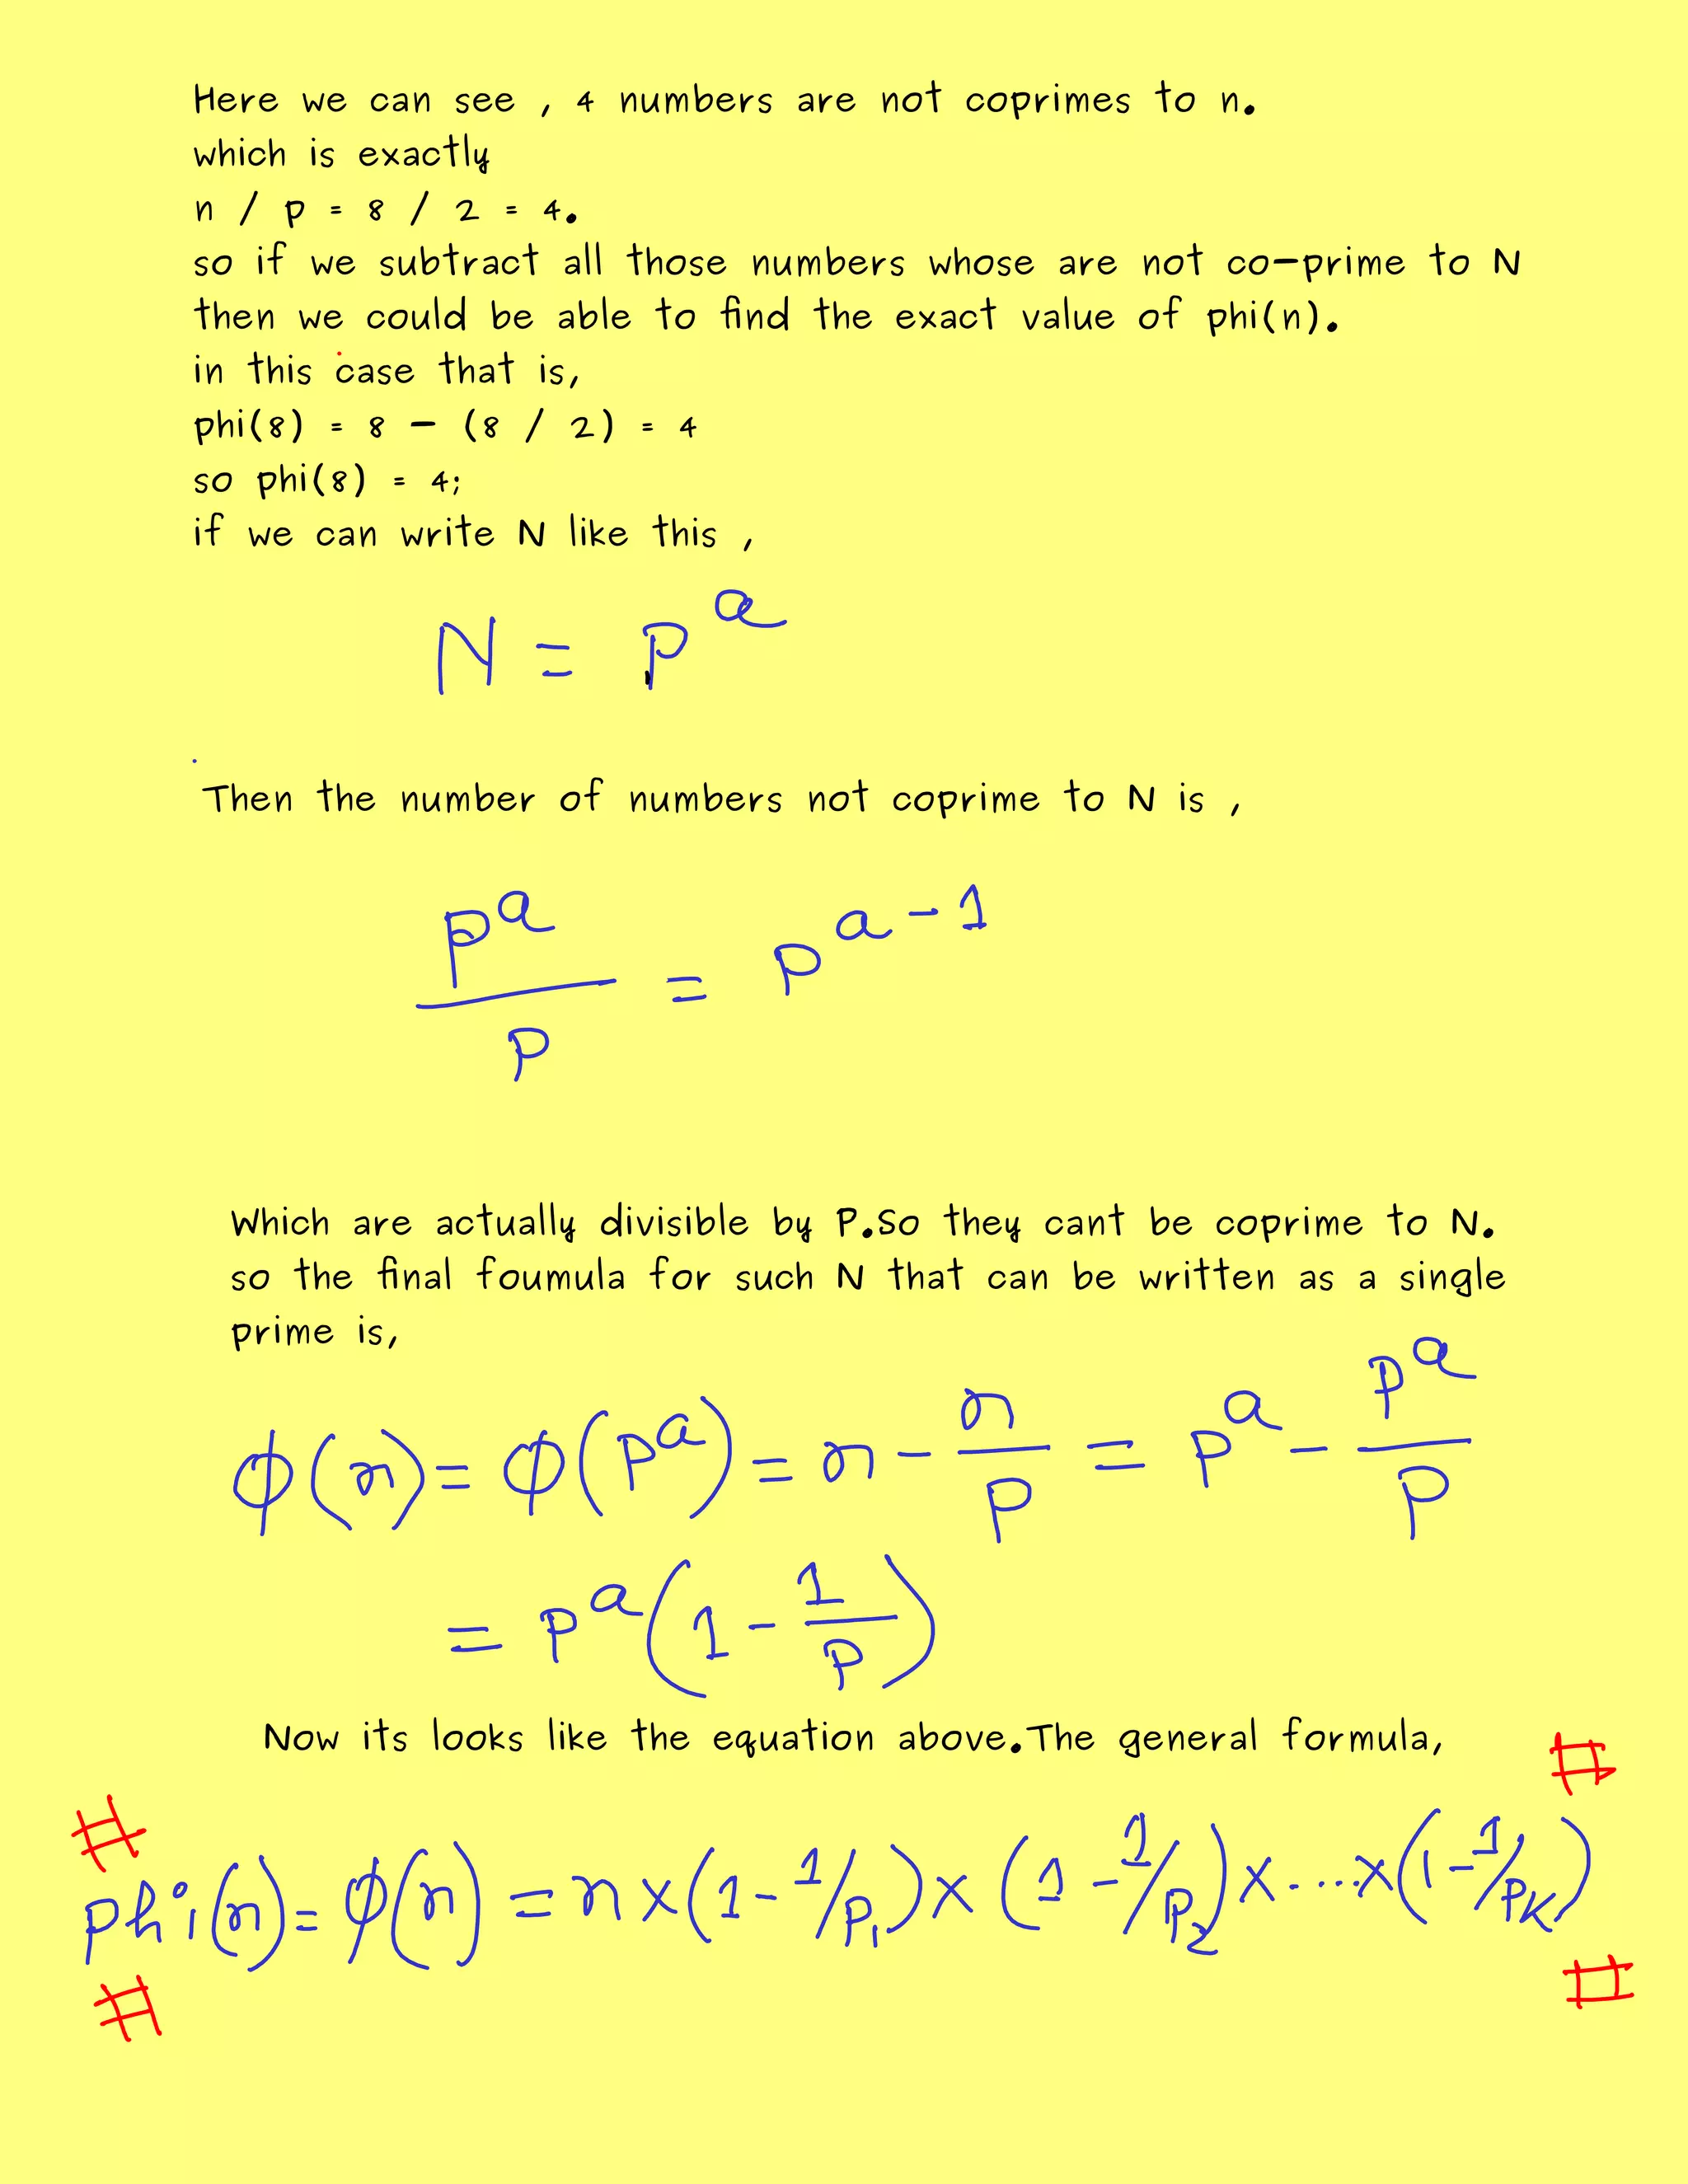 Here we can see , 4 numbers are not coprimes to n.
which is exactly
n / p = 8 / 2 = 4.
so if we subtract all those numbers whose are not co-prime to N
then we could be able to find the exact value of phi(n).
in this case that is,
phi(8) = 8 - (8 / 2) = 4
so phi(8) = 4;
if we can write N like this ,
N = p^a
Then the number of numbers not coprime to N is ,
p^a / p = p^(a-1)
Which are actually divisible by P.So they cant be coprime to N.
so the final foumula for such N that can be written as a single
prime is,
φ(n) = φ(p^a) = n - n/p = p^a - p^a/p
= p^a(1 - 1/p)
Now its looks like the equation above.The general formula,
phi(n) = φ(n) = n x (1 - 1/p₁) x (1 - 1/p₂) x ..... x (1 - 1/pK)